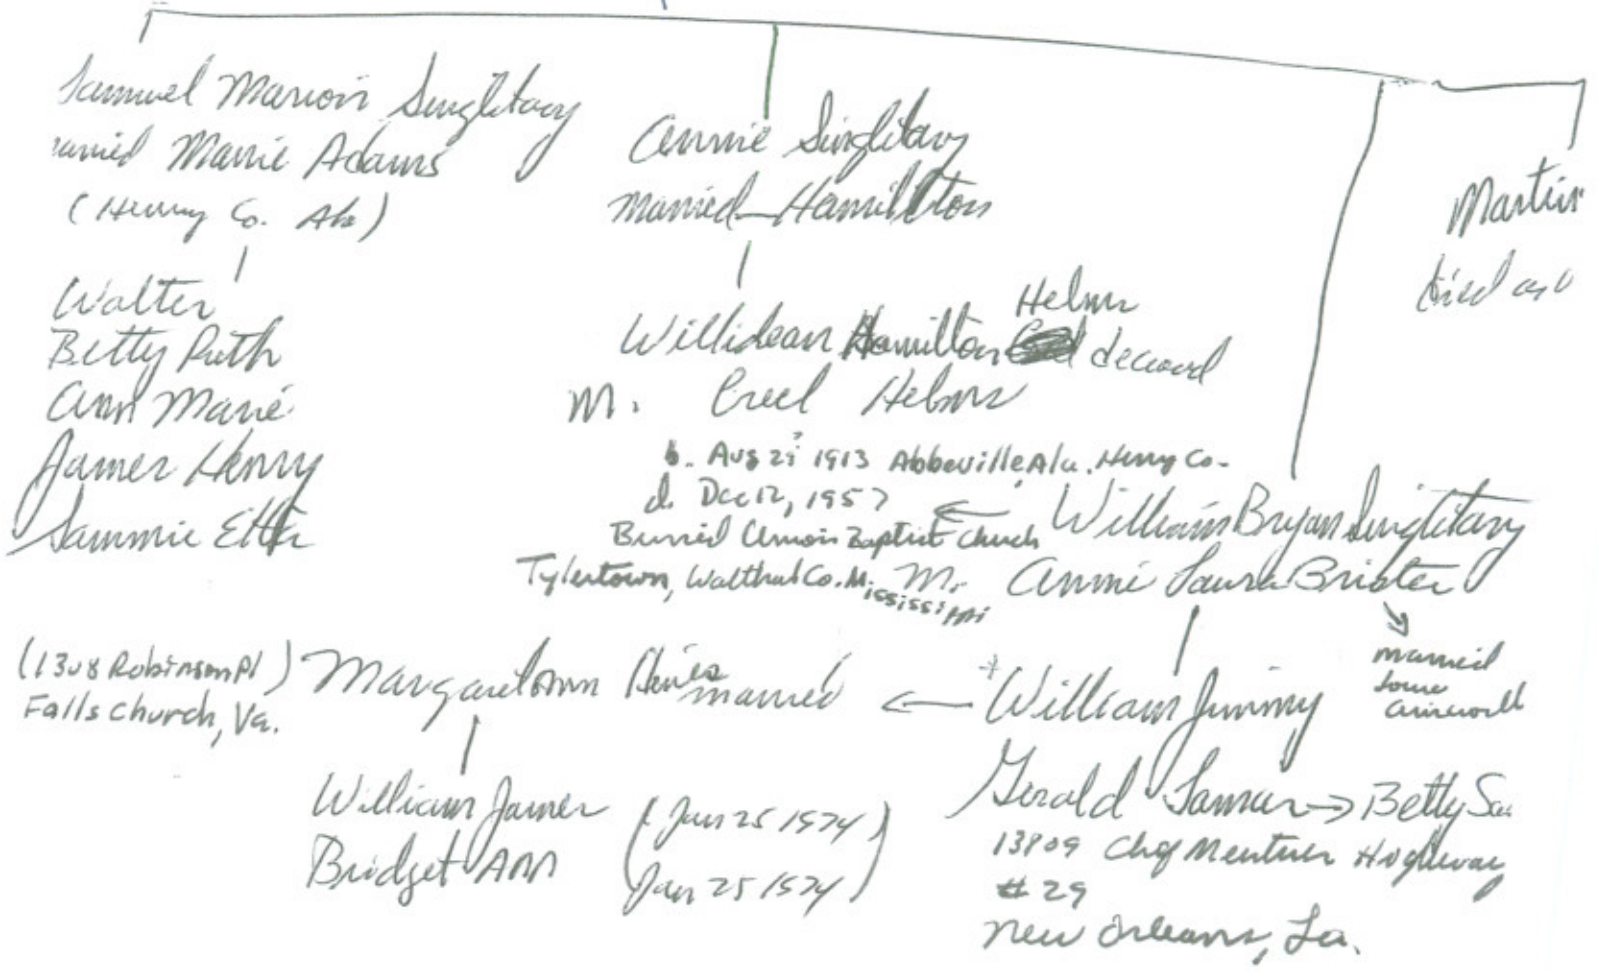 Samuel Marion Singletary
married Marrie Adams
(Henry Co. Ala)
Walter
Betty Ruth
Ann Marie
James Henry
Sammie Etta
Annie Singletary
married Hamilton
Helms
Willidean Hamilton deceased
M. Creel Helms
Martin
died as
b. Aug 2 1913 Abbeville, Ala. Henry Co.
d. Dec 12, 1957
Buried Union Baptist Church
Tylertown, Walthal Co. Mississippi
William Bryan Singletary
M. Annie Laura Brister
married
some
(1308 Robinson Pl)
Falls Church, Va.
Margaret Ann married
William Jimmy
William James (Jan 25 1974)
Bridget Ann (Jan 25 1974)
Gerald Lamar → Betty
13809 Chef Menteur Highway
# 29
New Orleans, La.